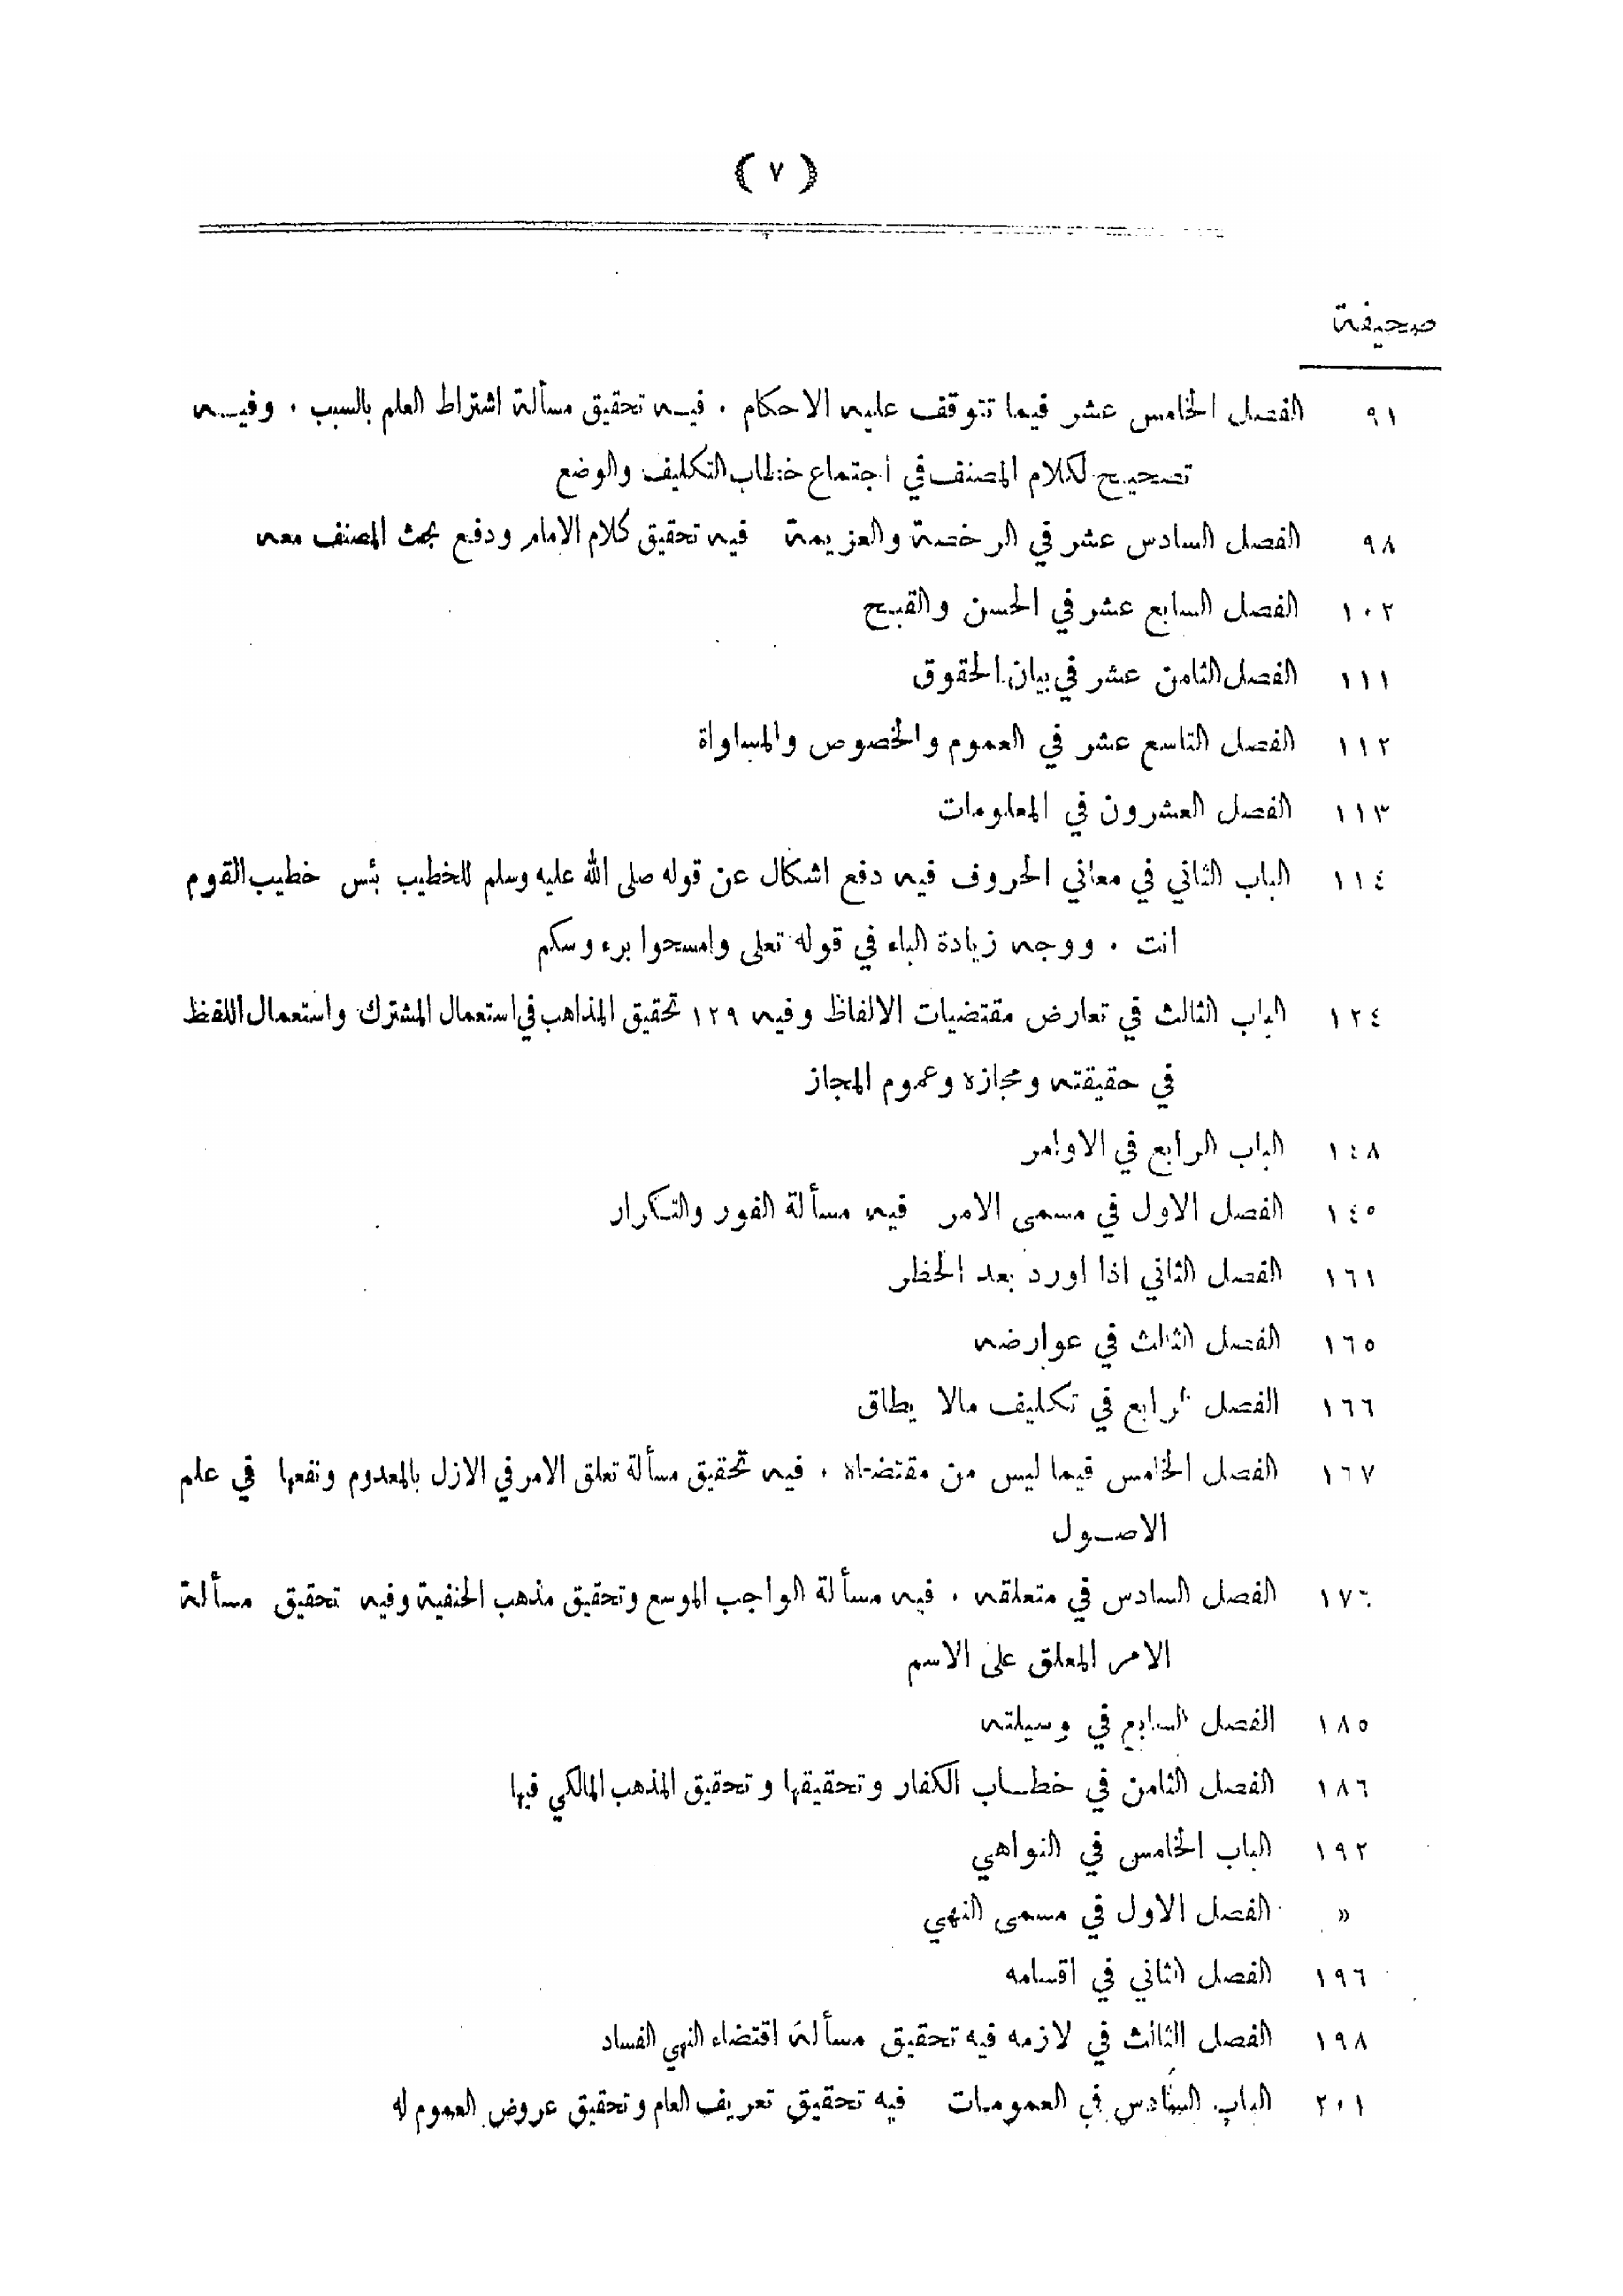 ( ٧ )
صحيفة
٩١ الفصل الخامس عشر فيما تتوقف عليه الاحكام . فيـه تحقيق مسألة اشتراط العلم بالسبب . وفيـه
تصحيح لكلام المصنف في اجتماع خطاب التكليف والوضع
٩٨ الفصل السادس عشر في الرخصة والعزيمة فيه تحقيق كلام الامام ودفع بحث المصنف معه
١٠٢ الفصل السابع عشر في الحسن والقبح
١١١ الفصل الثامن عشر في بيان الحقوق
١١٢ الفصل التاسع عشر في العموم والخصوص والمساواة
١١٣ الفصل العشرون في المعلومات
١١٤ الباب الثاني في معاني الحروف فيه دفع اشكال عن قوله صلى الله عليه وسلم للخطيب بئس خطيب القوم
انت . ووجه زيادة الباء في قوله تعلى وامسحوا برءوسكم
١٢٤ الباب الثالث في تعارض مقتضيات الالفاظ وفيه ١٢٩ تحقيق المذاهب في استعمال المشترك واستعمال اللفظ
في حقيقته ومجازه وعموم المجاز
١٤٨ الباب الرابع في الاوامر
١٤٥ الفصل الاول في مسمى الامر فيه مسألة الفور والتكرار
١٦١ الفصل الثاني اذا اورد بعد الحظر
١٦٥ الفصل الثالث في عوارضه
١٦٦ الفصل الرابع في تكليف مالا يطاق
١٦٧ الفصل الخامس فيما ليس من مقتضاه . فيه تحقيق مسألة تعلق الامر في الازل بالمعدوم ونفعها في علم
الاصـول
الفصل السادس في متعلقه . فيه مسألة الواجب الموسع وتحقيق مذهب الحنفية وفيه تحقيق مسألة
الامر المعلق على الاسم
١٨٥ الفصل السابع في وسيلته
١٨٦ الفصل الثامن في خطـاب الكفار وتحقيقها وتحقيق المذهب المالكي فيها
١٩٢ الباب الخامس في النواهي
« الفصل الاول في مسمى النهي
١٩٦ الفصل الثاني في اقسامه
١٩٨ الفصل الثالث في لازمه فيه تحقيق مسألة اقتضاء النهي الفساد
٢٠١ الباب السادس في العمومات فيه تحقيق تعريف العام وتحقيق عروض العموم له